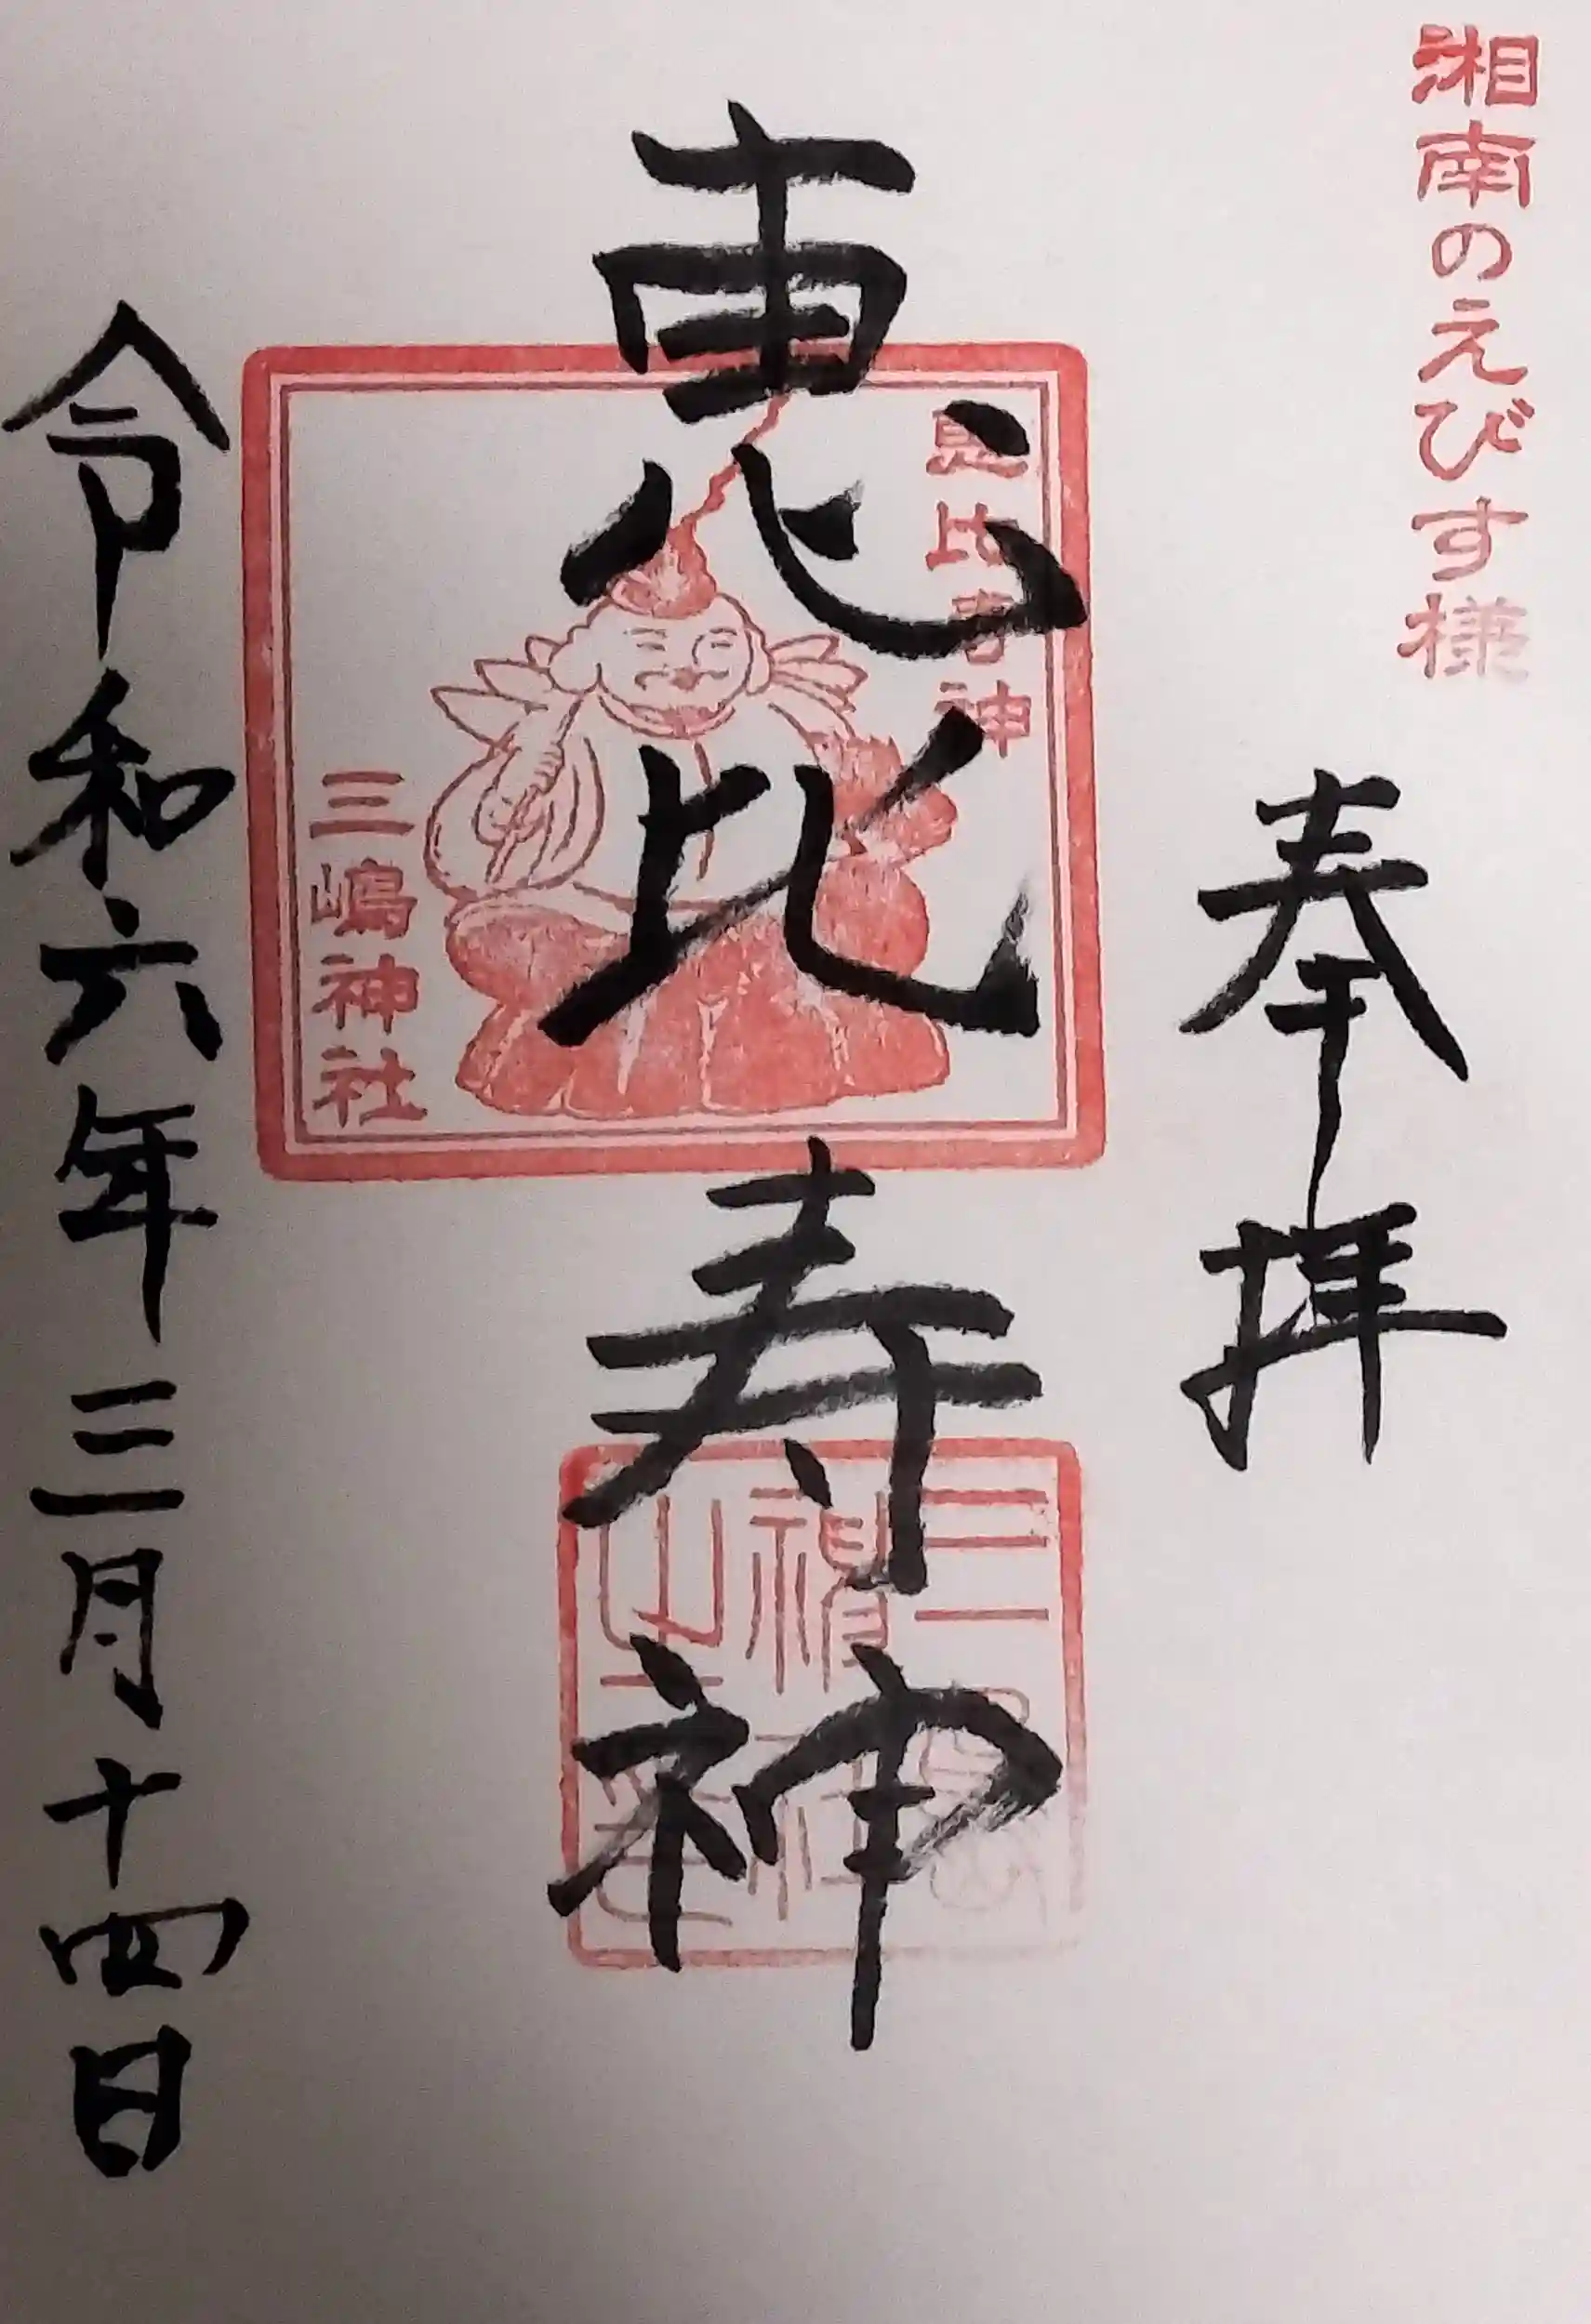 湘南のえびす様
奉拝
恵比寿神
恵比寿神
三嶋神社
令和六年三月十四日